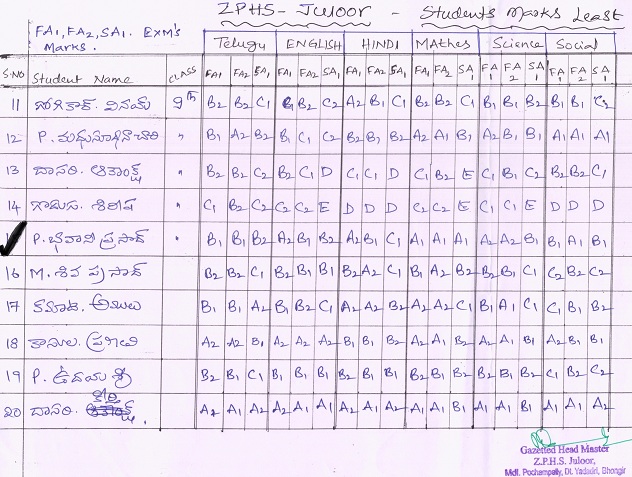 ZPHS - Juloor - Students Marks Least
FA1, FA2, SA1. EXM's
Marks.
Telugu ENGLISH HINDI MAthes Science Social
S.NO Student Name CLASS FA1 FA2 SA1 FA1 FA2 SA1 FA1 FA2 SA1 FA1 FA2 SA1 FA1 FA2 SA1 FA1 FA2 SA1
11 వినయ్ 9th B2 B2 C1 B2 C2 A2 B1 C1 B2 B2 C1 B1 B1 B2 B1 B1 C2
12 P. మధుసూధనాచారి " B1 A2 B2 B1 C1 C2 B2 B1 B2 A2 A1 B1 A2 B1 B1 A1 A1 A1
13 దాసరి. " B2 B2 C2 B2 C1 D C1 C1 D C1 B2 E C1 B1 C2 B2 B2 C1
14 శిరీష " C1 B2 C2 C2 C2 E D D D C2 C2 E C1 C1 E D D D
P. భవాని ప్రసాద్ " B1 B1 B2 A2 B1 B2 A2 B1 C1 A1 A1 A1 A2 A2 B1 B1 A1 B1
16 M. శివ ప్రసాద్ B2 B2 C1 B2 B1 B1 B2 A2 C1 B1 A2 B2 B2 B1 C1 C2 B2 C2
17 అములు B1 B1 A2 B1 B2 C1 A2 A2 B2 A2 A2 C1 B1 A1 C1 C1 B1 B2
18 కానుల. ప్రణతి A2 A2 B1 A2 A2 A2 B1 B1 B2 A1 A1 B2 A2 A1 B1 A2 B1 B1
19 P. ఉదయ శ్రీ B2 B1 C1 B1 B1 B1 B2 B1 B1 B2 B1 B2 B2 B1 B2 C1 B2 C2
20 దాసరి. కీర్తి A2 A1 A2 A2 A1 A2 A1 A1 A2 A1 A1 B1 A1 A1 B1 A1 A1 A2
Gazetted Head Master
Z.P.H.S. Juloor,
Mdl. Pochampally, Dt. Yadadri, Bhongir